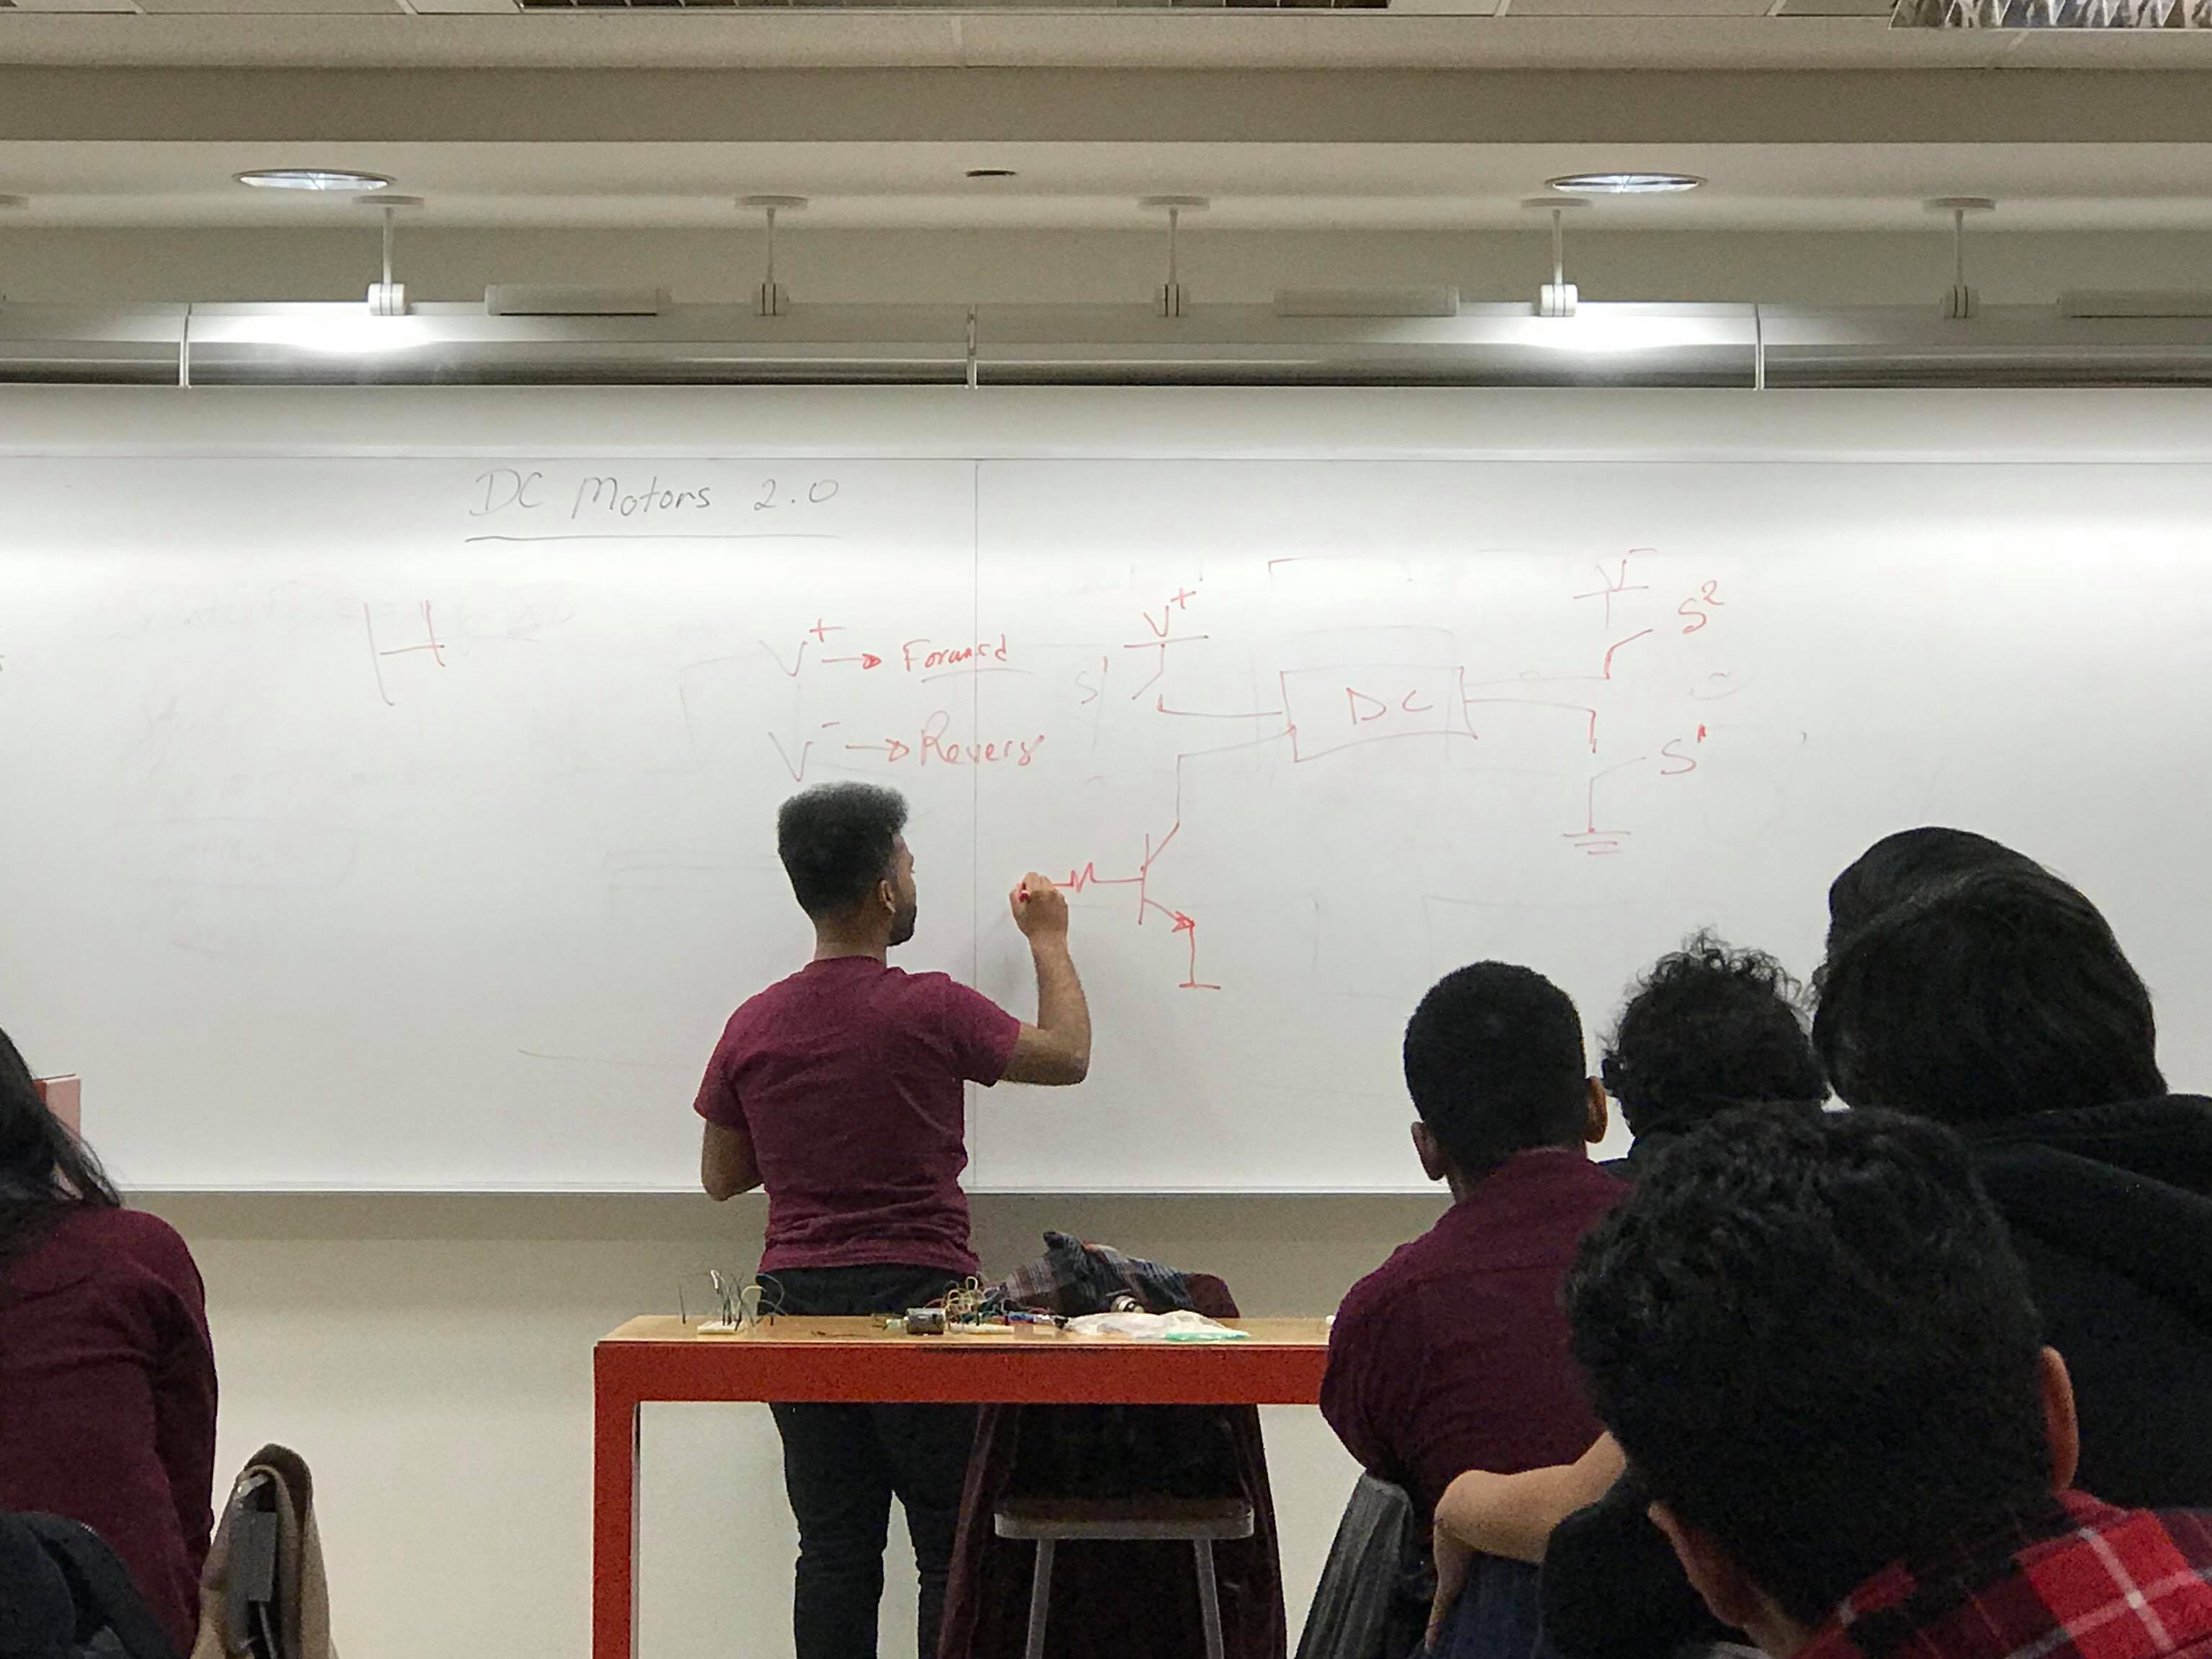 DC Motors 2.0
V+ → Forward
V- → Revers
V+
S1
DC
V-
S2
S1